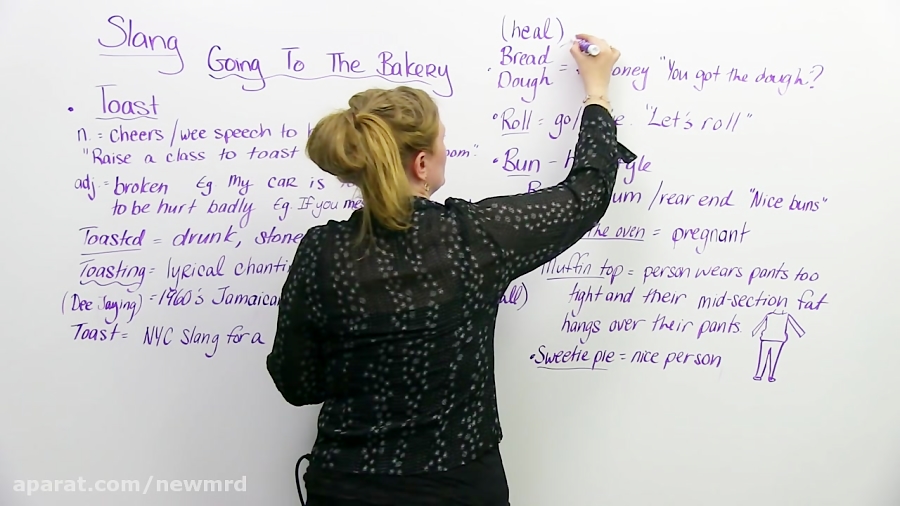 Slang
Going To The Bakery
• Toast
n. = cheers/wee speech to
"Raise a class to toast
adj. = broken Eg My car is
to be hurt badly Eg. If you
Toasted = drunk,
Toasting = lyrical
(Dee Jaying) = 1960's
Toast = NYC slang for a
(heal)
• Bread
Dough = "You got the dough?
• Roll = "Let's roll"
• Bun -
/rear end "Nice buns"
the oven = pregnant
Muffin top = person wears pants too
tight and their mid-section fat
hangs over their pants
• Sweetie pie = nice person
aparat.com/newmrd